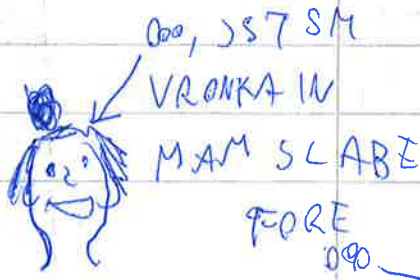 Ooo, JST SM
VRONKA IN
MAM SLABE
FORE